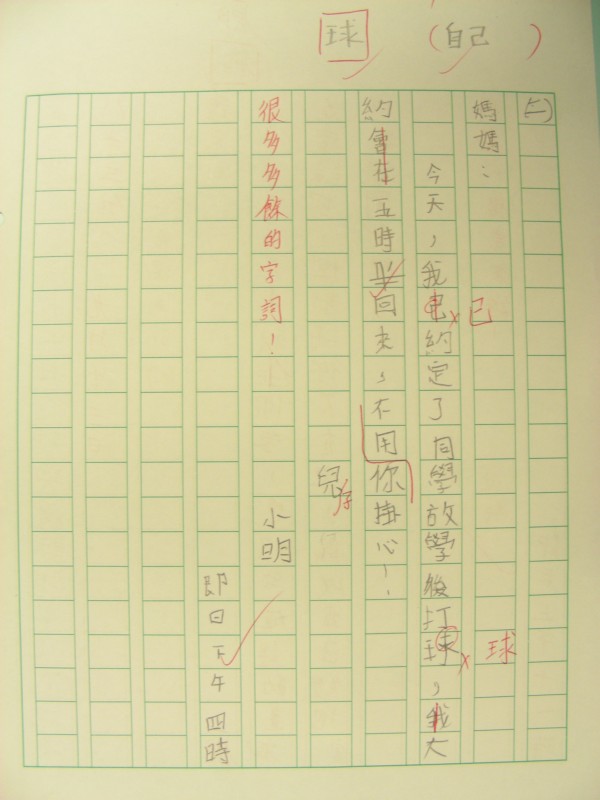 球 （自己　）
(上)
媽媽：
今天，我已約定了同學放學後打球，我大
已
球
約會在五時半回來，不用你掛心！
兒
子
小明
很多多餘的字詞！
即日下午四時